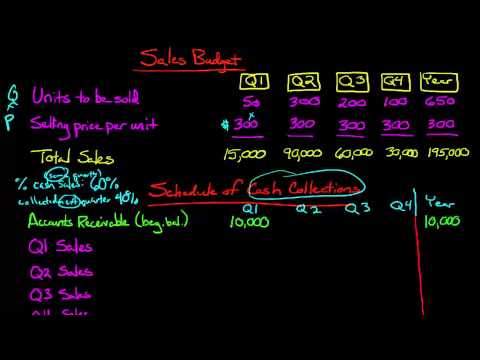 Sales Budget
Q1 Q2 Q3 Q4 Year
Q Units to be sold 50 300 200 100 650
x
P Selling price per unit $300 300 300 300 300
x
Total Sales 15,000 90,000 60,000 30,000 195,000
(same quarter)
% cash sales: 60%
collected next quarter 40%
Schedule of Cash Collections
Q1 Q2 Q3 Q4 Year
Accounts Receivable (beg. bal.) 10,000 10,000
Q1 Sales
Q2 Sales
Q3 Sales
Q4 Sales